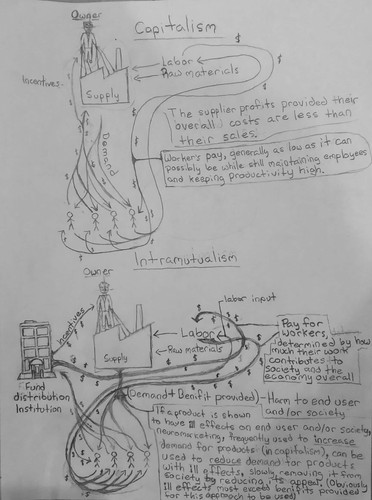 Owner
Capitalism
Labor
Raw materials
Incentives
Supply
Demand
The supplier profits provided their
overall costs are less than
their sales.
Worker's pay, generally as low as it can
possibly be while still maintaining employees
and keeping productivity high.
Intramutualism
Owner
labor input
Incentives
Labor
Raw materials
Supply
Pay for
workers,
determined by how
much their work
contributes to
society and the
economy overall
Fund
distribution
Institution
(Demand + Benifit provided) - Harm to end user
and/or society
If a product is shown
to have ill effects on end user and/or society,
neuromarketing, frequently used to increase
demand for products (in capitalism), can be
used to reduce demand for products
with ill effects, slowly removing it from
society by reducing its appeal. (Obviously
ill effects must exceed benefits provided
for this approach to be used)